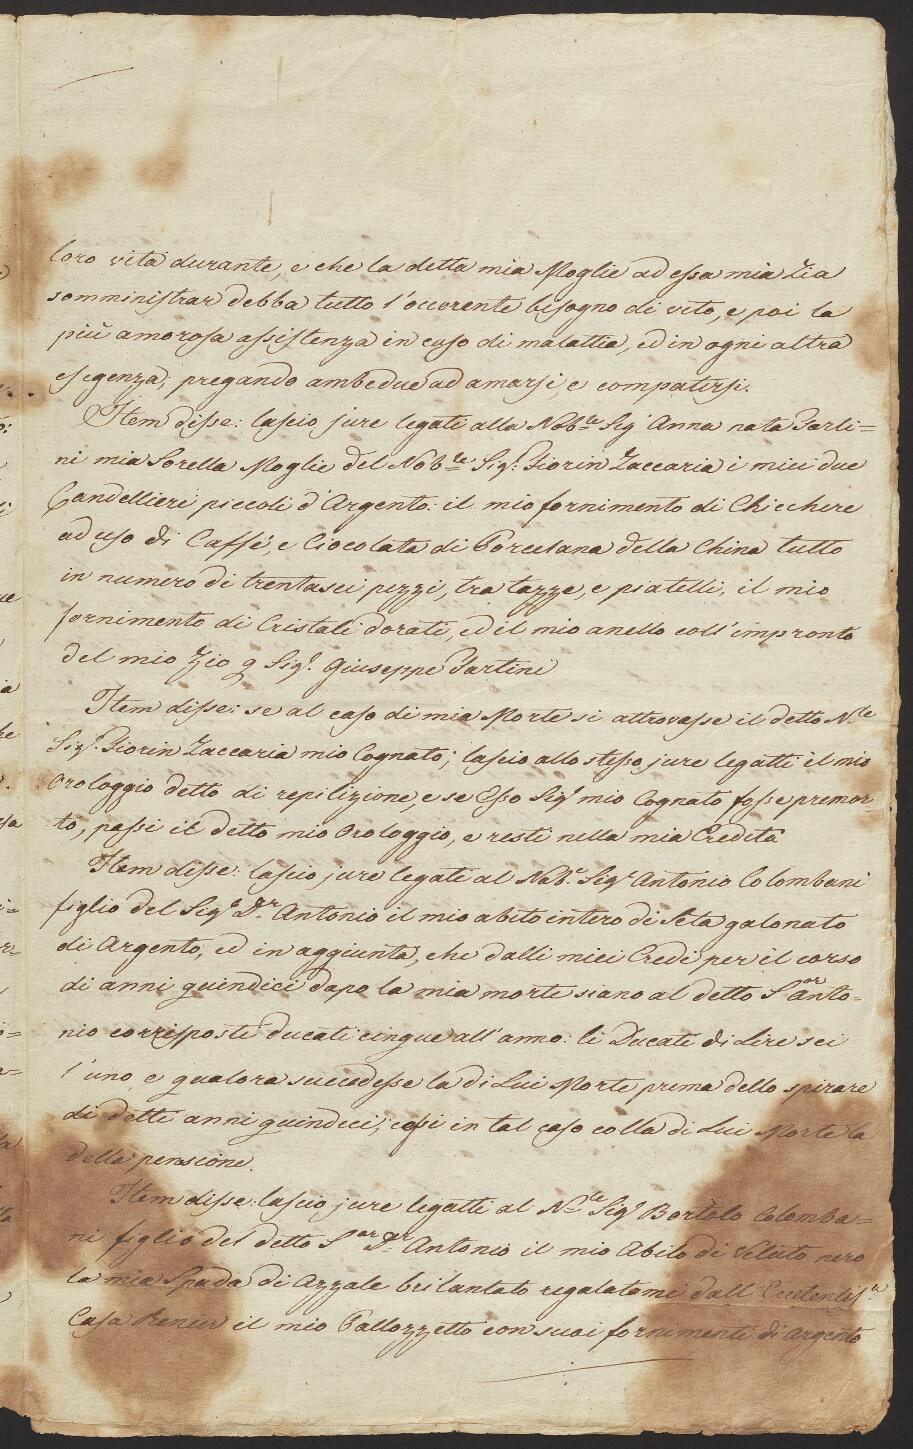 loro vita durante, e che la detta mia Moglie ad essa mia Zia
somministrar debba tutto l'occorente bisogno di vito, e poi la
più amorosa assistenza in caso di malattia, ed in ogni altra
esigenza; pregando ambedue ad amarsi, e compatirsi.
Item disse: lascio jure legati alla Nob:le Sig:ra Anna nata Tarti=
ni mia Sorella Moglie del Nob:le Sig:r Fiorin Zaccaria i miei due
Candellieri piccoli d'Argento: il mio fornimento di Chicchere
ad uso di Caffè, e Ciocolata di Porcelana della China tutto
in numero di trentasei pezzi, tra tazze, e piatelli, il mio
fornimento di Cristali dorati, ed il mio anello coll'impronto
del mio Zio q Sig:r Giuseppe Tartini
Item disse: se al caso di mia Morte si attrovasse il detto N:le
Sig:r Fiorin Zaccaria mio Cognato; lascio allo stesso jure legatti il mio
Orologgio detto di repilizione, e se Esso Sig:r mio Cognato fosse premor=
to, passi il detto mio Orologgio, e resti nella mia Eredità
Item disse: lascio jure legati al Nob:e Sig:r Antonio Colombani
figlio del Sig:r D:r Antonio il mio abito intero di Seta galonato
di Argento, ed in aggiunta, che dalli miei Eredi per il corso
di anni quindici dapo la mia morte siano al detto S:or Anto=
nio corrisposti ducati cinque all'anno: li Ducati di Lire sei
l'uno e qualora succedesse la di Lui Morte prima dello spirare
di detti anni quindici, cessi in tal caso colla di Lui Morte la
detta pensione.
Item disse: lascio jure legatti al N:le Sig:r Bortolo Colomba=
ni figlio del detto S:or D:r Antonio il mio Abito di Veluto nero
la mia Spada di Azzale brilantato regalatami dall'Eccelentis:a
Casa Renier il mio Pallozzetto con suoi fornimenti di Argento